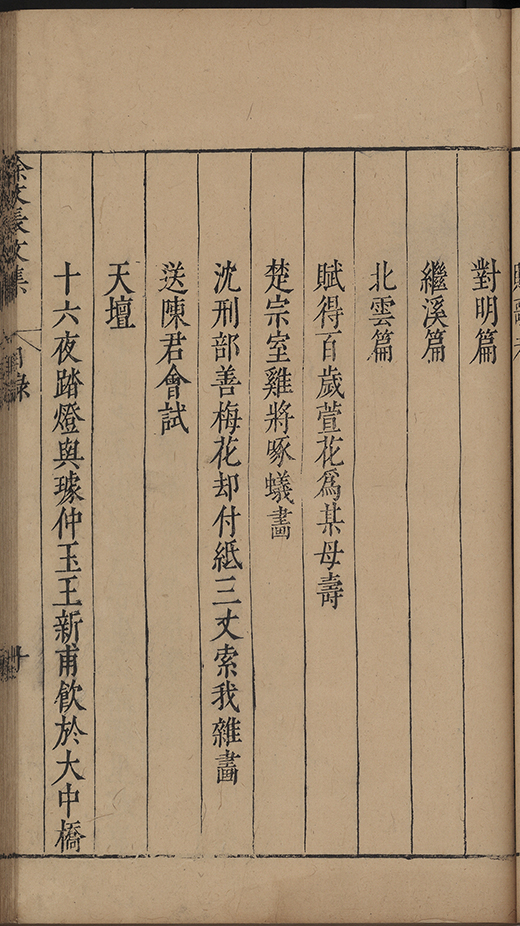 對明篇
繼溪篇
北雲篇
賦得百歲萱花爲某母壽
楚宗室雞將啄蟻畵
沈刑部善梅花却付紙三丈索我雜畵
送陳君會試
天壇
十六夜踏燈與璩仲玉王新甫飲於大中橋
徐文長文集
目錄